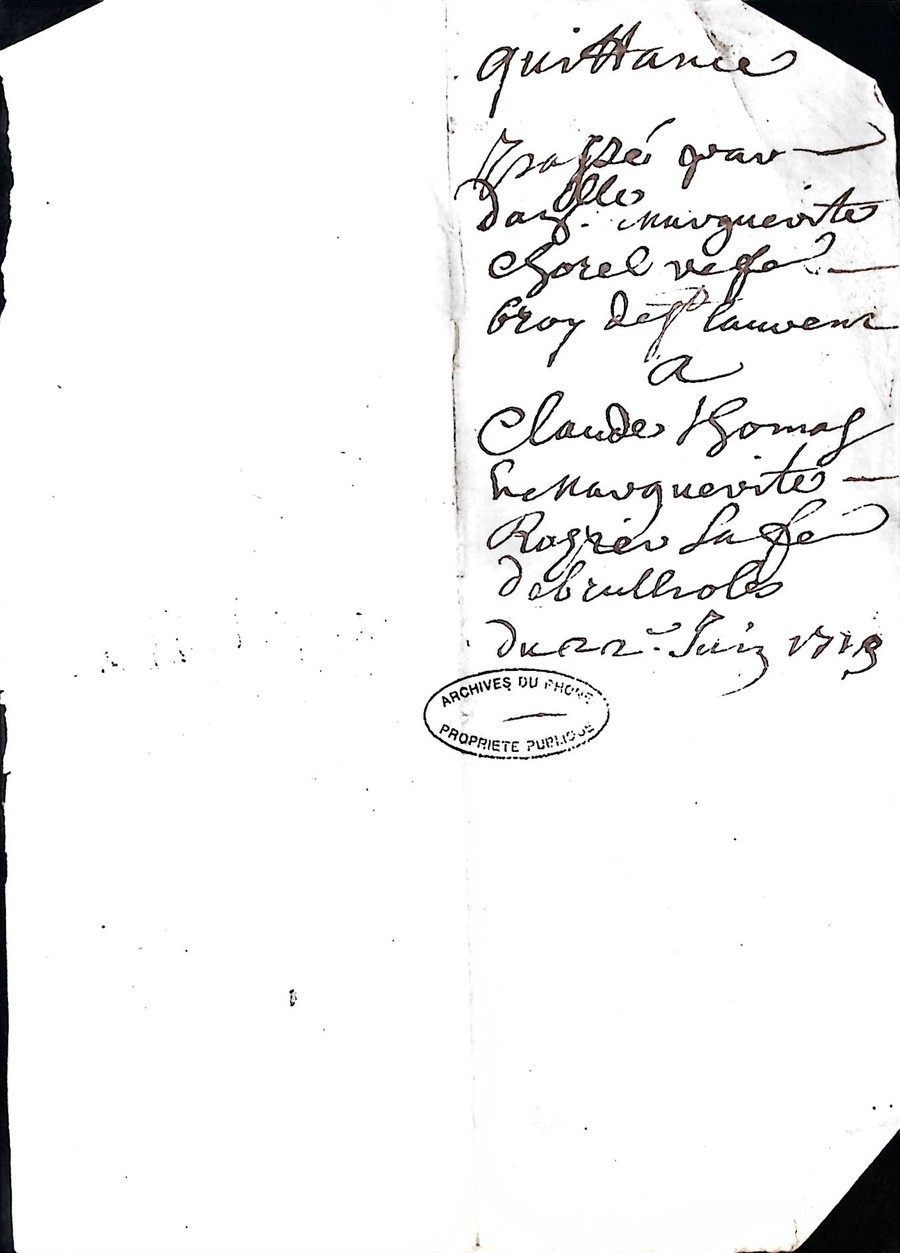 quittance
passé par
dam.lle Marguerite
Chorel veſve
broy de st laurent
a
Claude Thomas
et Marguerite
Rozier Sa fé
debrulliolles
du 22e. Juin 1719
ARCHIVES DU RHONE
PROPRIETE PUBLIQUE